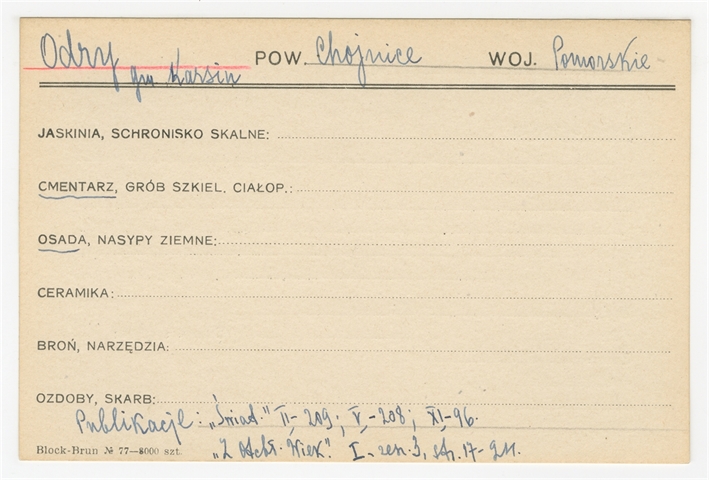 Odry POW. Chojnice WOJ. Pomorskie
gm Karsin
JASKINIA, SCHRONISKO SKALNE:
CMENTARZ, GRÓB SZKIEL. CIAŁOP.:
OSADA, NASYPY ZIEMNE:
CERAMIKA:
BROŃ, NARZĘDZIA:
OZDOBY, SKARB:
Publikacje: „Świat." II-209; V-208; XI-96.
Block-Brun № 77—8000 szt. „Z Otchł. Wiek". I- zesz. 3, str. 17-